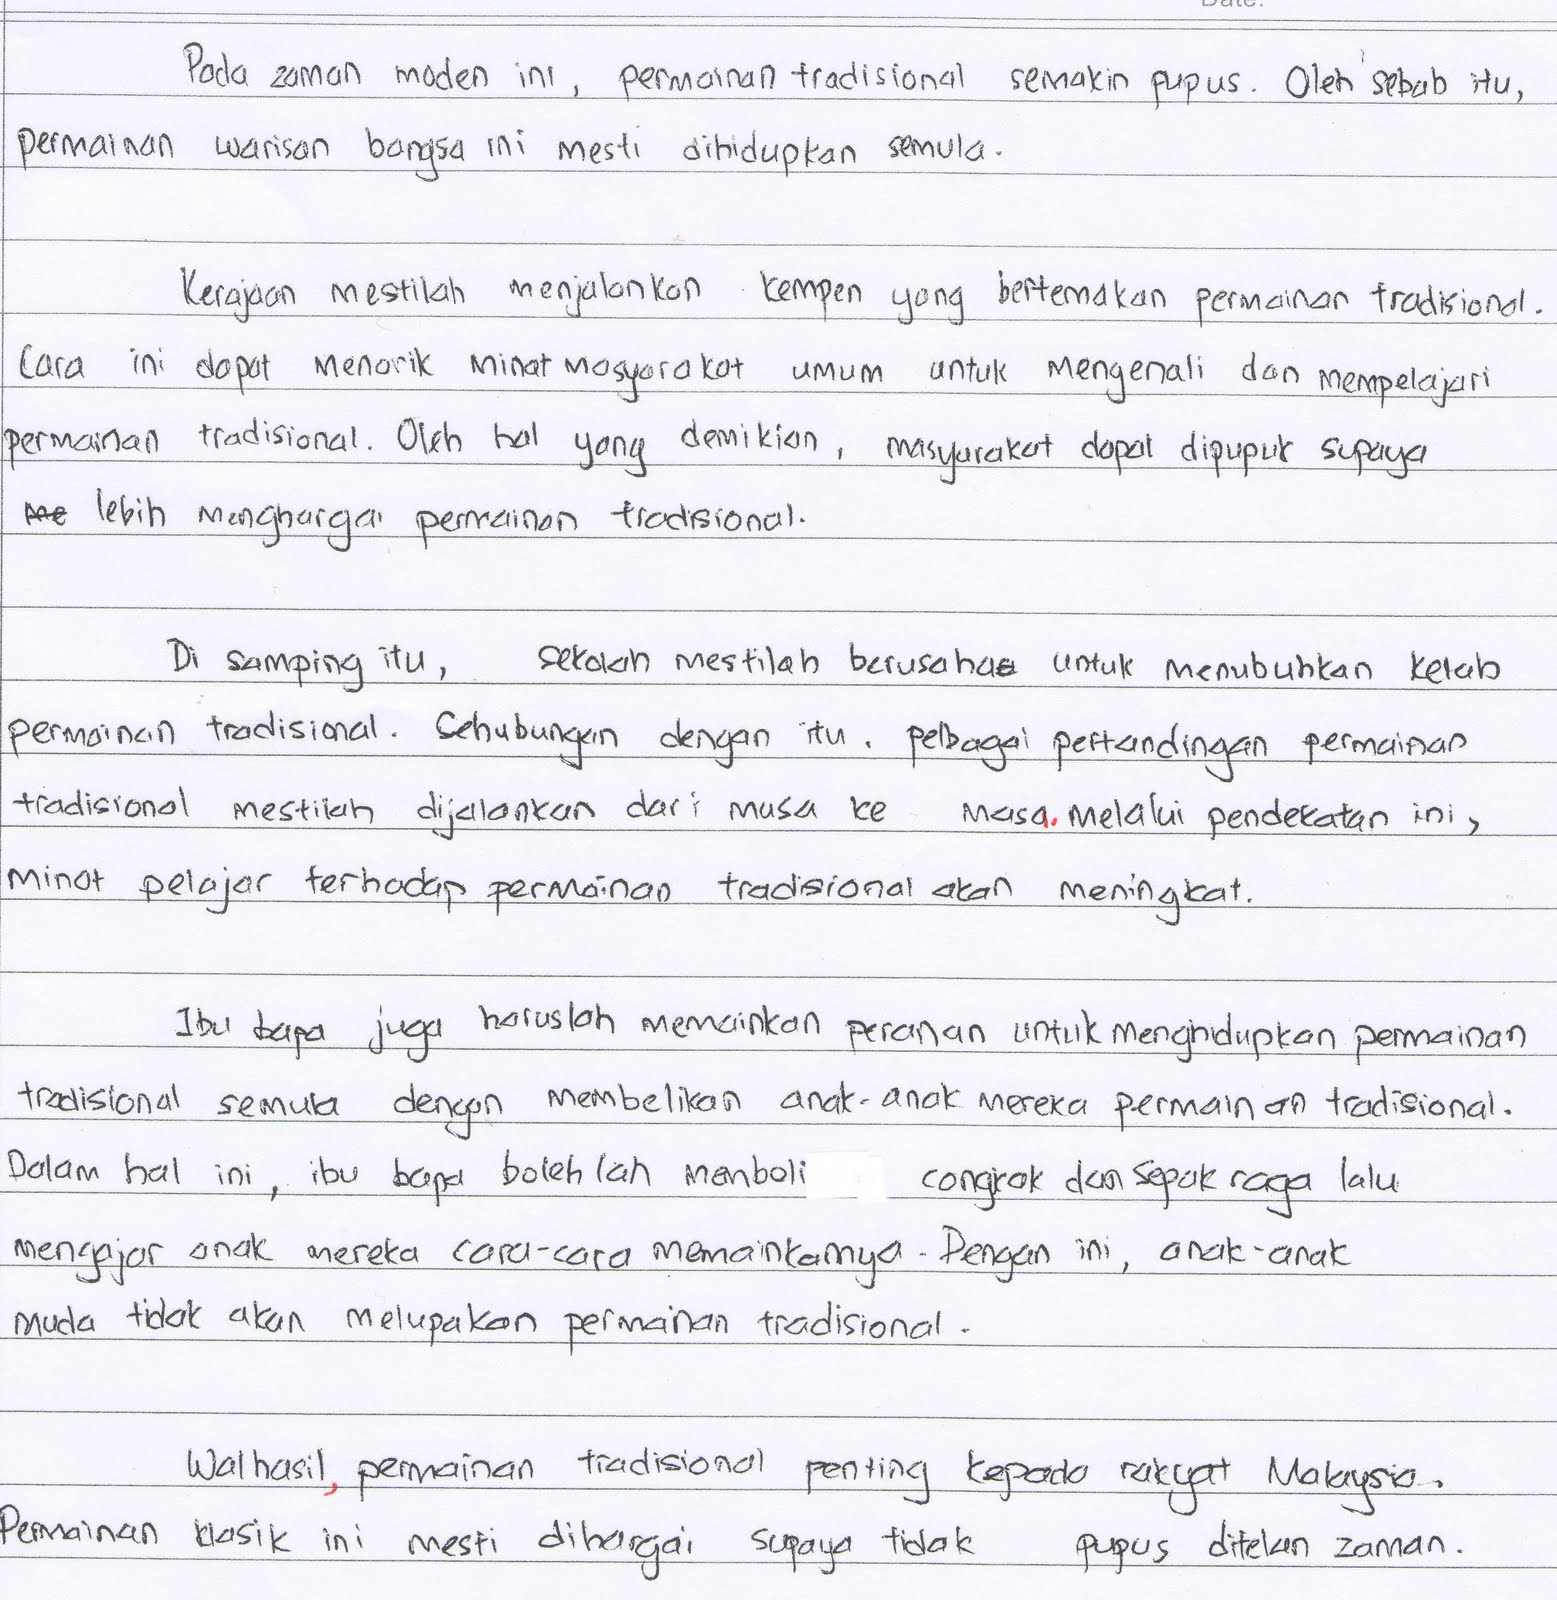 Date:
Pada zaman moden ini, permainan tradisional semakin pupus. Oleh sebab itu,
permainan warisan bangsa ini mesti dihidupkan semula.
Kerajaan mestilah menjalankan kempen yang bertemakan permainan tradisional.
Cara ini dapat menarik minat masyarakat umum untuk mengenali dan mempelajari
permainan tradisional. Oleh hal yang demikian, masyarakat dapat dipupuk supaya
lebih menghargai permainan tradisional.
Di samping itu, sekolah mestilah berusaha untuk menubuhkan kelab
permainan tradisional. Sehubungan dengan itu, pelbagai pertandingan permainan
tradisional mestilah dijalankan dari masa ke masa. Melalui pendekatan ini,
minat pelajar terhadap permainan tradisional akan meningkat.
Ibu bapa juga haruslah memainkan peranan untuk menghidupkan permainan
tradisional semula dengan membelikan anak-anak mereka permainan tradisional.
Dalam hal ini, ibu bapa bolehlah memboli congkak dan sepak raga lalu
mengajar anak mereka cara-cara memainkannya. Dengan ini, anak-anak
muda tidak akan melupakan permainan tradisional.
Walhasil, permainan tradisional penting kepada rakyat Malaysia.
Permainan klasik ini mesti dihargai supaya tidak pupus ditelan zaman.